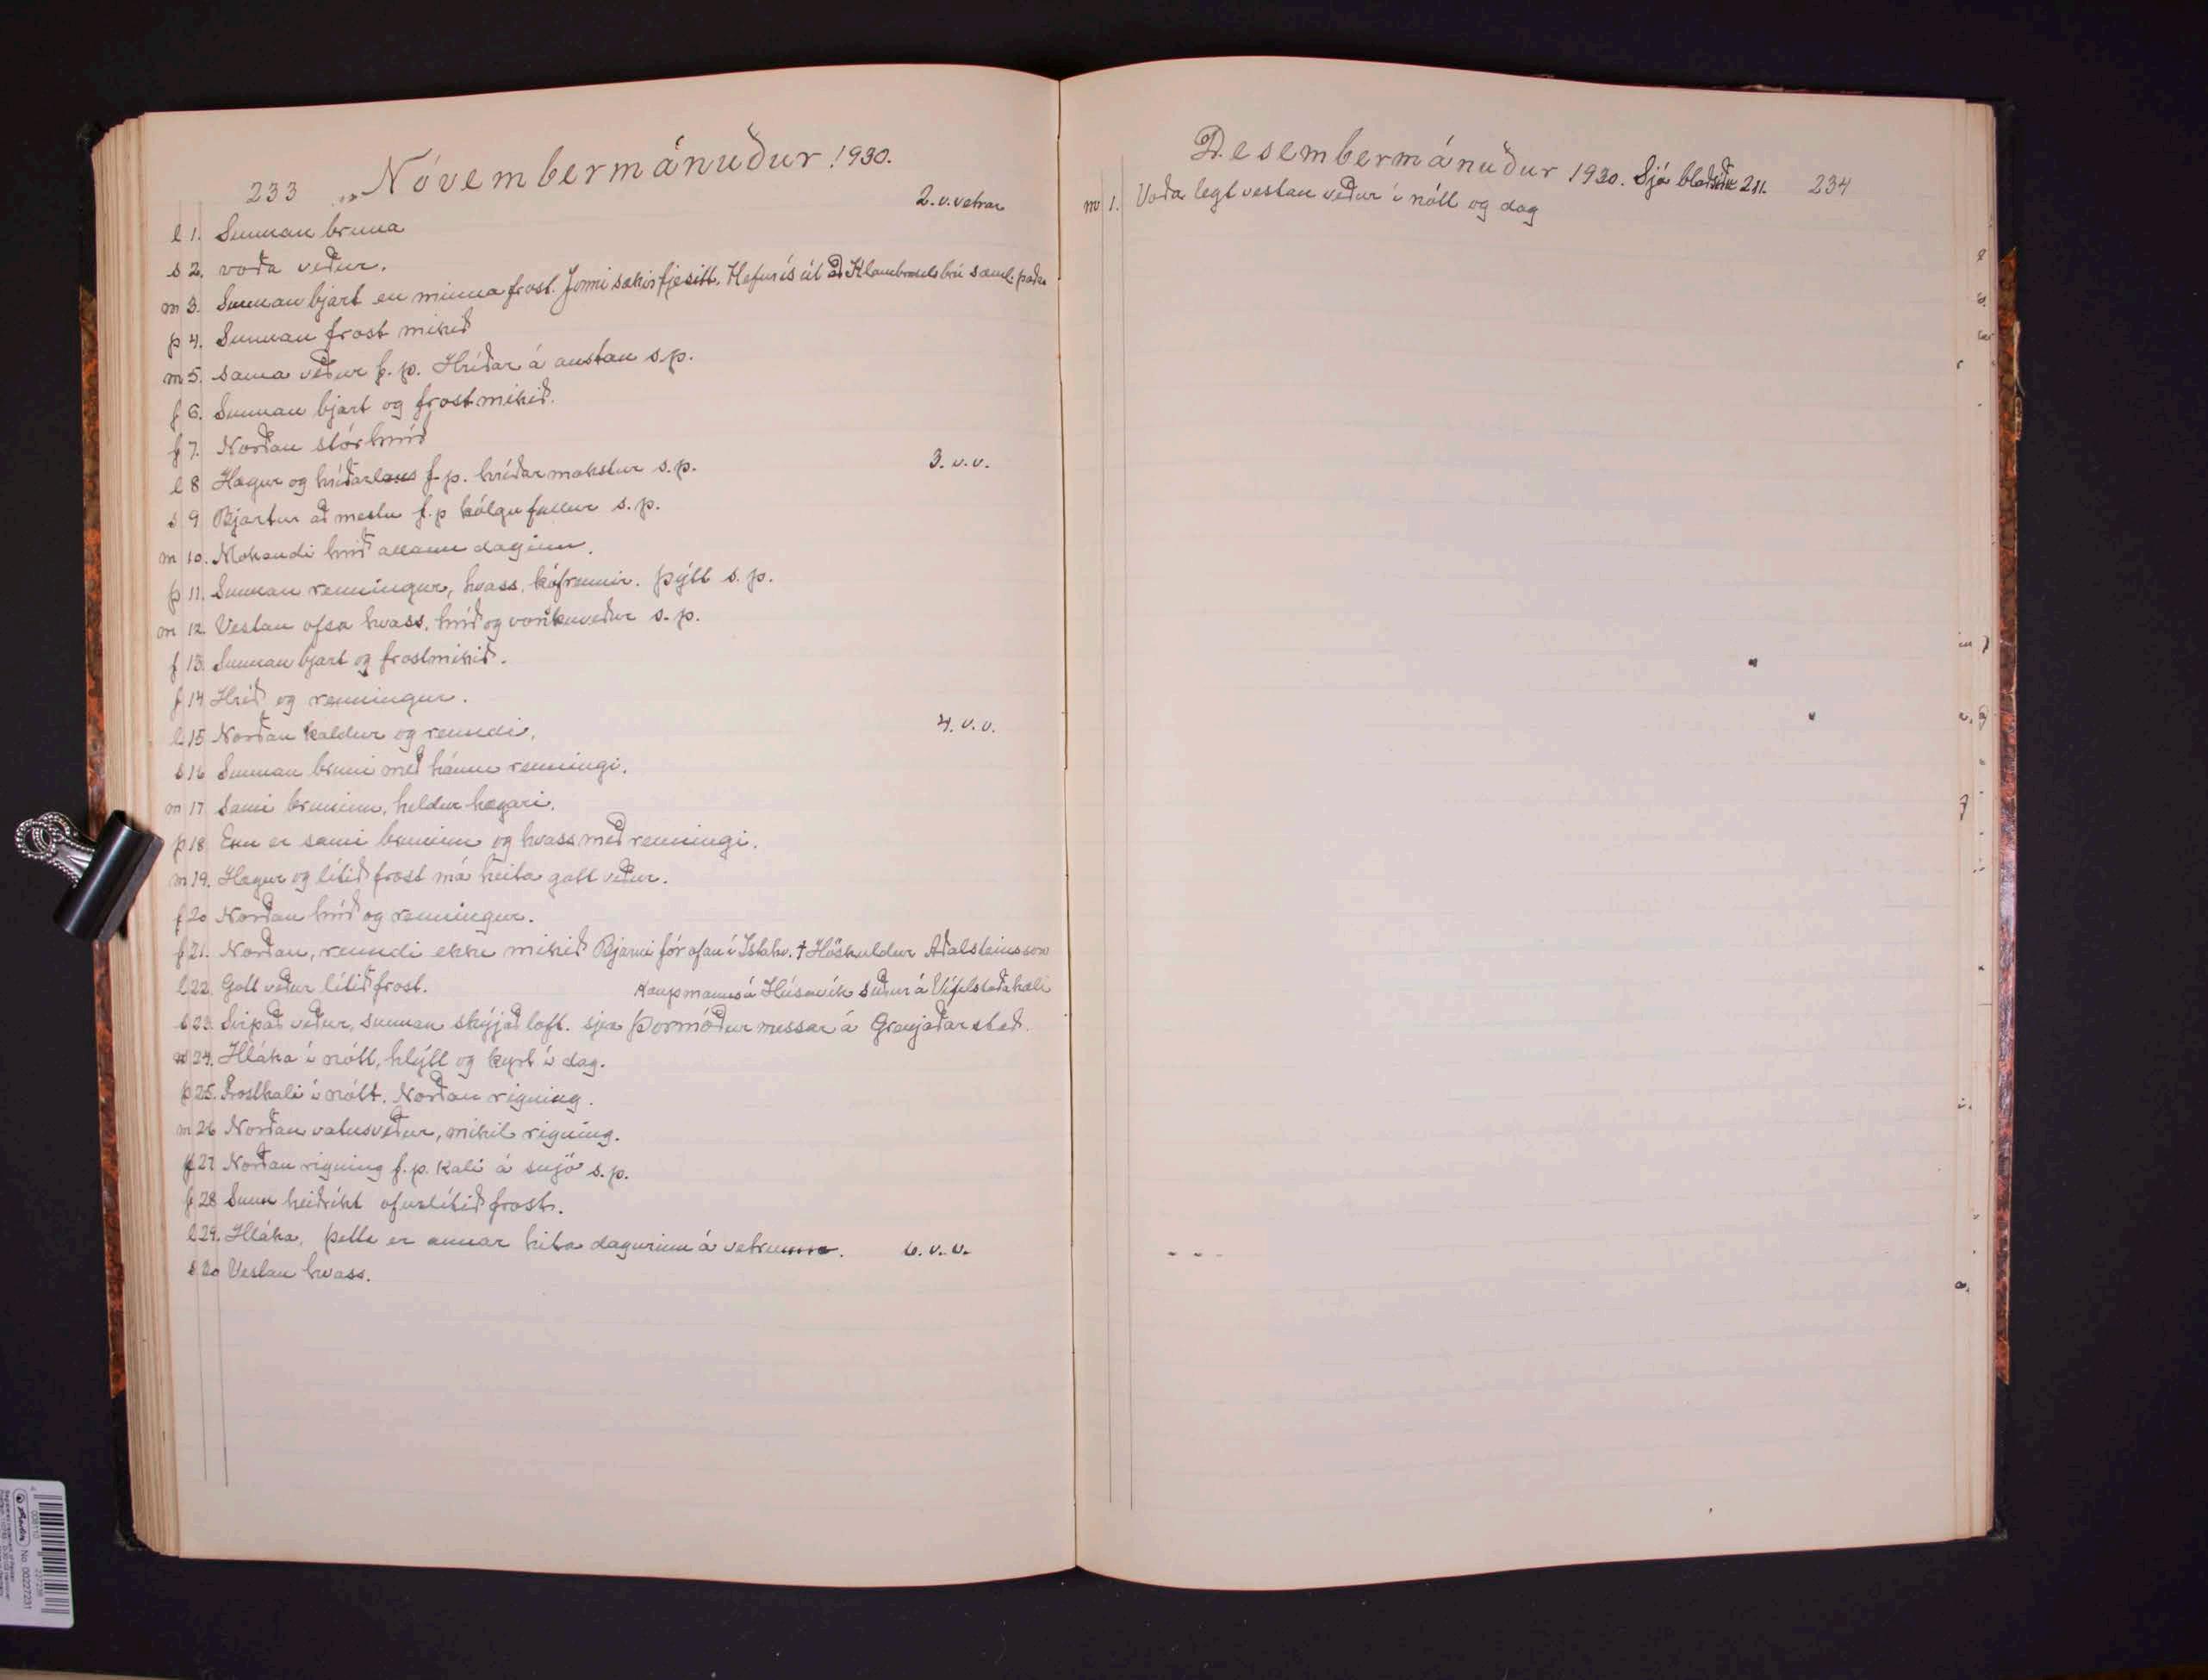 233 Nóvembermánuður 1930.
2. v. vetrar
l 1. Sunnan bruna
s 2. voða veður.
m 3. Sunnan bjart en minna frost. Jonni sækir fje sitt. Hefur ís út að Klambrasels brú saml. það
þ 4. Sunnan frost mikið
m 5. sama veður f. p. Hríðar á austan s. p.
f 6. Sunnan bjart og frostmikið.
f 7. Norðan stórhríð
l 8 Hægur og hríðarlaus f. p. hríðarmokstur s. p. 3. v. v.
s 9 Bjartur að mestu f. p kólgufullur s. p.
m 10. Mokandi hríð allann daginn.
þ 11. Sunnan renningur, hvass, kófrennir. þýtt s. p.
m 12. Vestan ofsa hvass, hríð og vonkuveður s. p.
f 13. Sunnan bjart og frostmikið.
f 14 Hríð og renningur.
l 15 Norðan kaldur og renndi. 4. v. v.
s 16 Sunnan bruni með hánm renningi.
m 17 Sami bruninn, heldur hægari.
þ 18 Enn er sami bruninn og hvass með renningi.
m 19. Hægur og lítið frost má heita gott veður.
f 20 Norðan hríð og renningur.
f 21. Norðan, renndi ekki mikið Bjarni fór ofan í Ístahv. † Höskuldur Aðalsteinsson
l 22. Gott veður lítið frost. Kaupmanns á Húsavík suður á Vífilstaðahæli
s 23. Svipað veður, sunnan skýjað loft. sjera Þormóður messar á Grenjaðarstað.
m 24. Hláka í nótt, hlýtt og kyrt í dag.
þ 25. Frostkali í nótt. Norðan rigning.
m 26 Norðan vatnsveður, mikil rigning.
f 27 Norðan rigning f. p. kali á snjó s. p.
f 28 Sunn heiðríkt ofurlítið frost.
l 29. Hláka, þetta er annar hita dagurinn á vetrinum. 6. v. v.
s 30 Vestan hvass.
Desembermánuður 1930. Sjá blaðsíðu 211. 234
m 1. Voðalegt vestan veður í nótt og dag